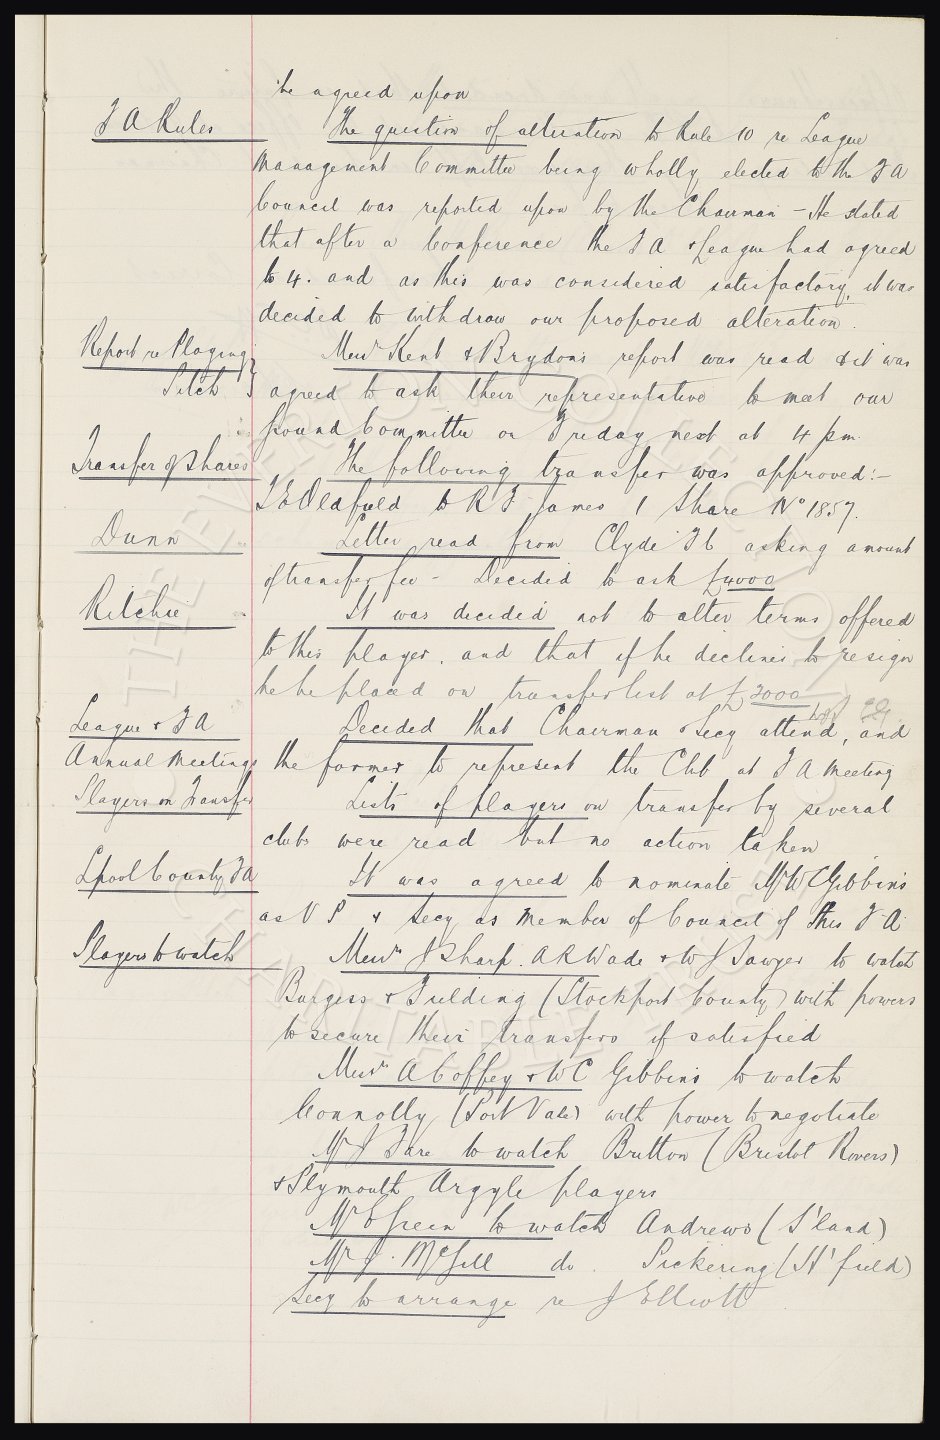 be agreed upon
F A Rules The question of alteration to Rule 10 re League
Management Committee being wholly elected to the F A
Council was reported upon by the Chairman - He stated
that after a Conference the F A & League had agreed
to 4. and as this was considered satisfactory, it was
decided to withdraw our proposed alteration.
Report re Playing Messrs Kent & Brydon's report was read & it was
Pitch } agreed to ask their representative to meet our
ground Committee on Friday next at 4 pm.
Transfer of Shares The following transfer was approved:-
T E Oldfield to R F James 1 Share No 1857.
Dunn Letter read from Clyde F C asking amount
of transfer fee - Decided to ask £4000
Ritchie It was decided not to alter terms offered
to this player, and that if he declines to resign
he be placed on transfer list at £2000
League & F A Decided that Chairman & Secy attend, and
Annual Meetings the former to represent the Club at F A Meeting
Players on Transfer Lists of players on transfer by several
clubs were read but no action taken
Lpool County F A It was agreed to nominate Mr W C Gibbins
as V P & Secy as Member of Council of this F A
Players to watch Messrs J Sharp. A R Wade & W J Sawyer to watch
Burgess & Fielding (Stockport County) with powers
to secure their transfers if satisfied
Messrs A Coffey & W C Gibbins to watch
Connolly (Port Vale) with power to negotiate
Mr J Fare to watch Britton (Bristol Rovers)
& Plymouth Argyle players
Mr E Green to watch Andrews (S'land)
Mr J. McGill do. Pickering (H'field)
Secy to arrange re J Elliott
THE EVERTON COLLECTION
CHARITABLE TRUST